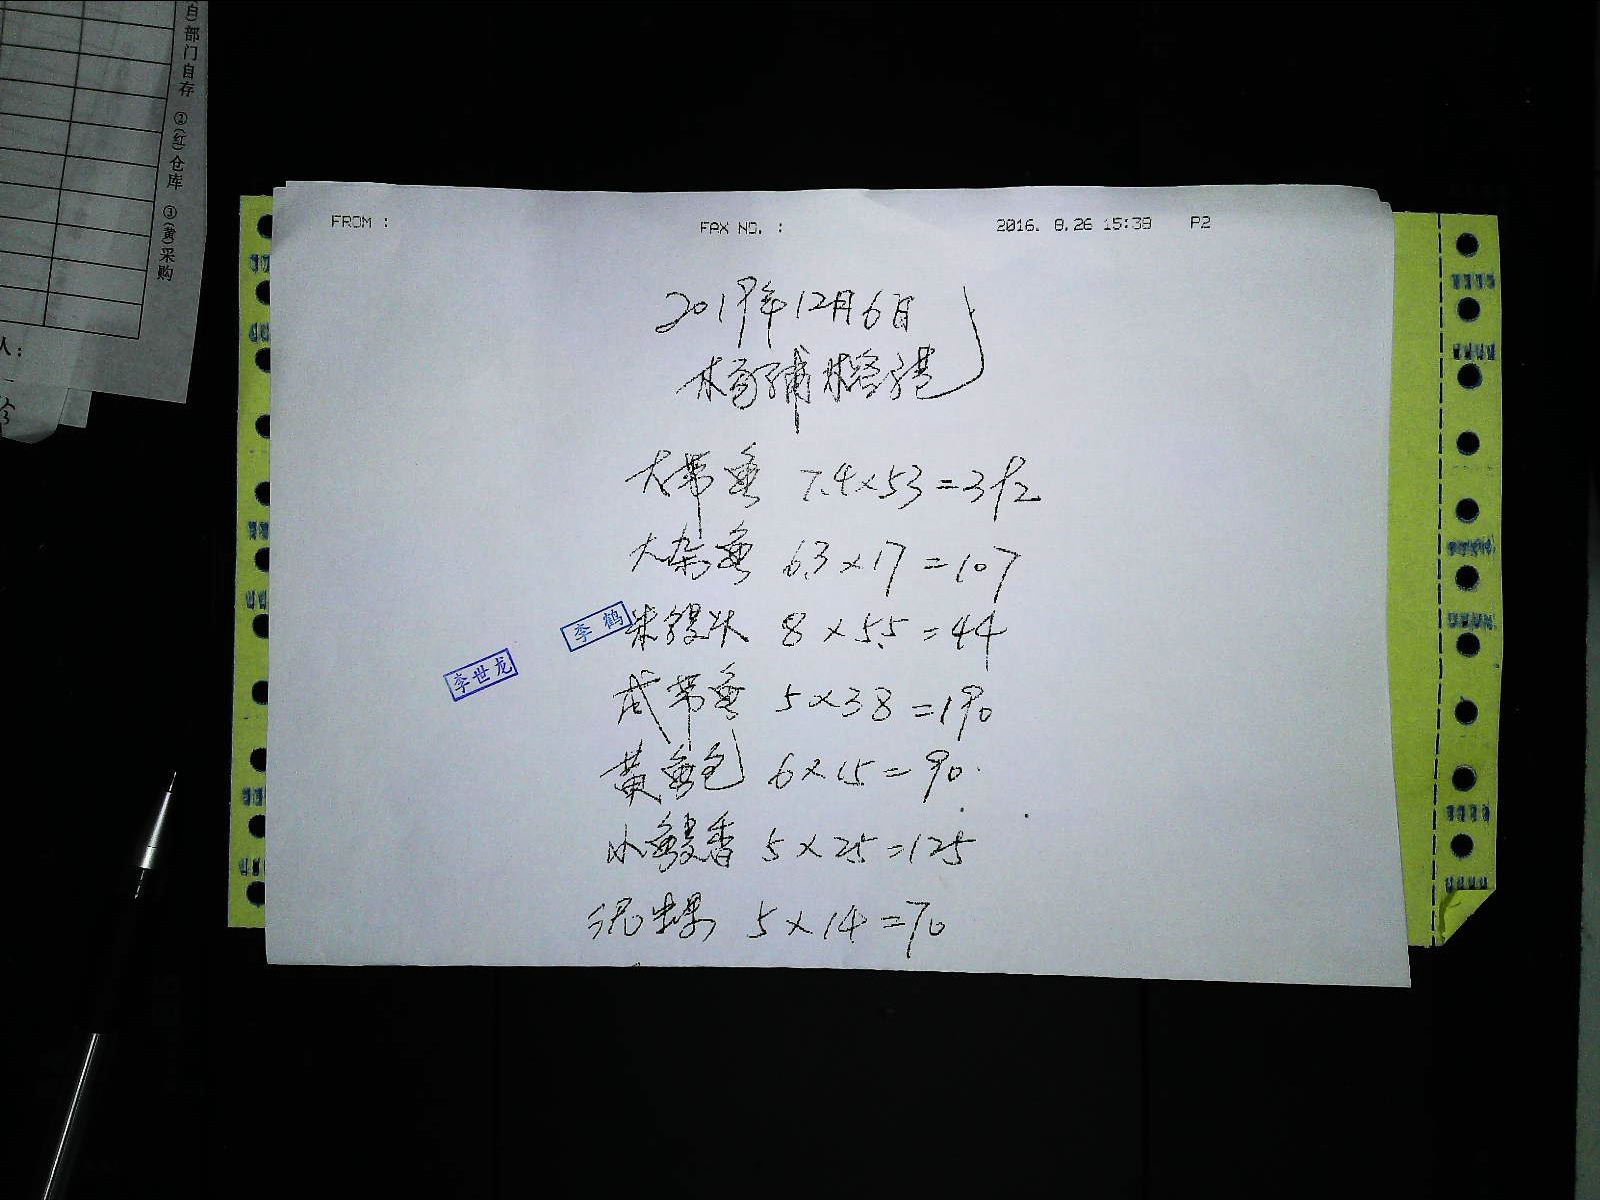 自)部门自存 ②(红)仓库 ③(黄)采购
人：
FROM :
FAX NO. :
2016. 8.26 15:39 P2
2019年12月6日
大带鱼 7.4×53=392
大杂鱼 6.3×17=107
8×5.5=44
李鹤
李世龙
带鱼 5×38=190
黄鱼 6×15=90
小 5×25=125
5×14=70